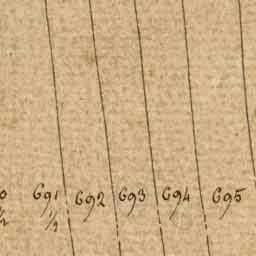 691 692 693 694 695